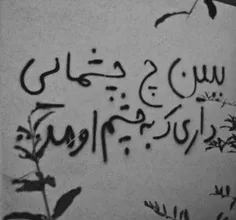 ببین چ چشمانی
داری ک به چشم اومد